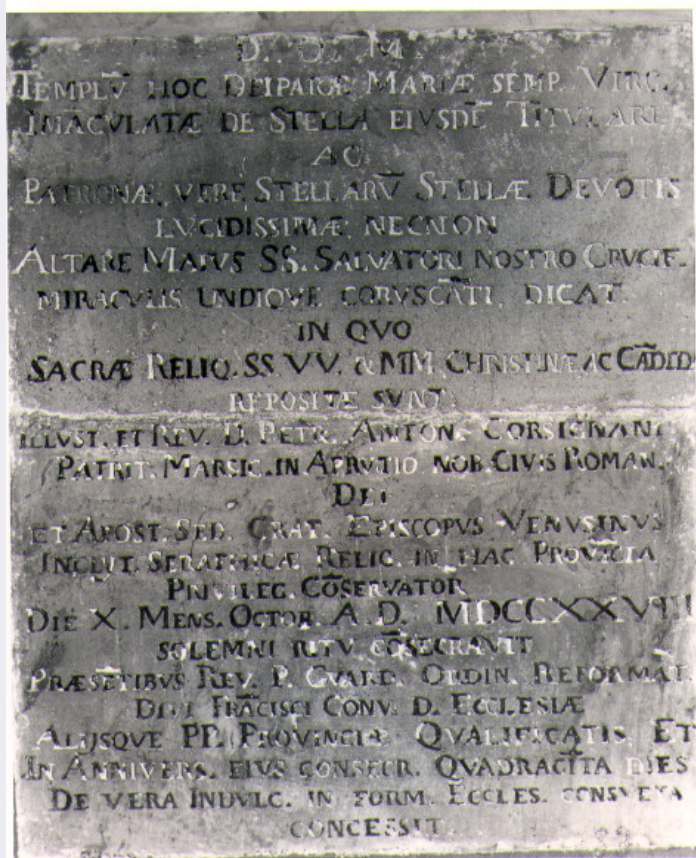 D. O. M.
TEMPLV̄ HOC DEIPARÆ MARIÆ SEMP. VIRG.
IMACVLATÆ DE STELLA EIVSDĒ TITVLARI
AC
PATRONÆ, VERE STELLARV̄ STELLÆ DEVOTIS
LVCIDISSIMÆ NECNON
ALTARE MAIVS SS. SALVATORI NOSTRO CRVCIF.
MIRACVLIS UNDIQVE CORVSCĀTI, DICAT
IN QVO
SACRÆ RELIQ. SS. VV. & MM. CHRISTINÆ AC
REPOSITÆ SVNT
ILLVST. ET REV. D. PETR. ANTON. CORSIGNANI
PATRIT. MARSIC. IN APRVTIO NOB. CIVIS ROMAN.
DEI
ET APOST. SED. GRAT. EPISCOPVS VENVSINVS
INCLIT. SERAPHICÆ RELIG. IN HAC PROVĪCIA
PRIVILEG. CŌSERVATOR
DIE X. MENS. OCTOR. A. D. MDCCXXVIII
SOLEMNI RITV CŌSECRAVIT
PRÆSĒTIBVS REV. P. GVARD. ORDIN. REFORMAT.
DIVI FRĀCISCI CONV. D. ECCLESIÆ
ALIJSQVE PP. PROVINCIÆ QVALIFICATIS, ET
IN ANNIVERS. EIVS CONSECR. QVADRAGĪTA DIES
DE VERA INDVLG. IN FORM. ECCLES. CONSVETA
CONCESSIT